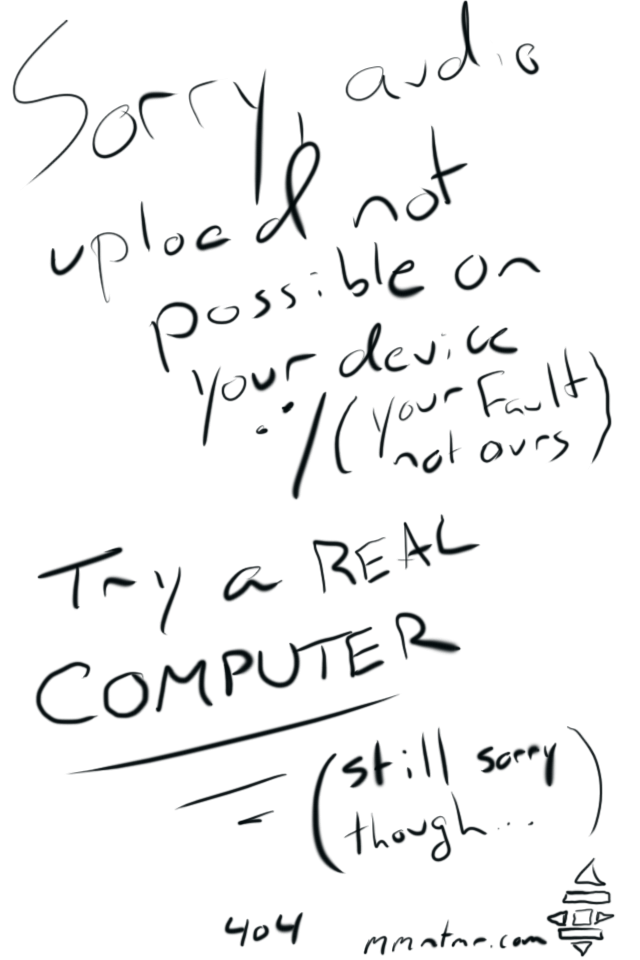 Sorry, audio
upload not
possible on
your device
:/ (your Fault
not ours)
Try a REAL
COMPUTER
(still sorry
though...)
404